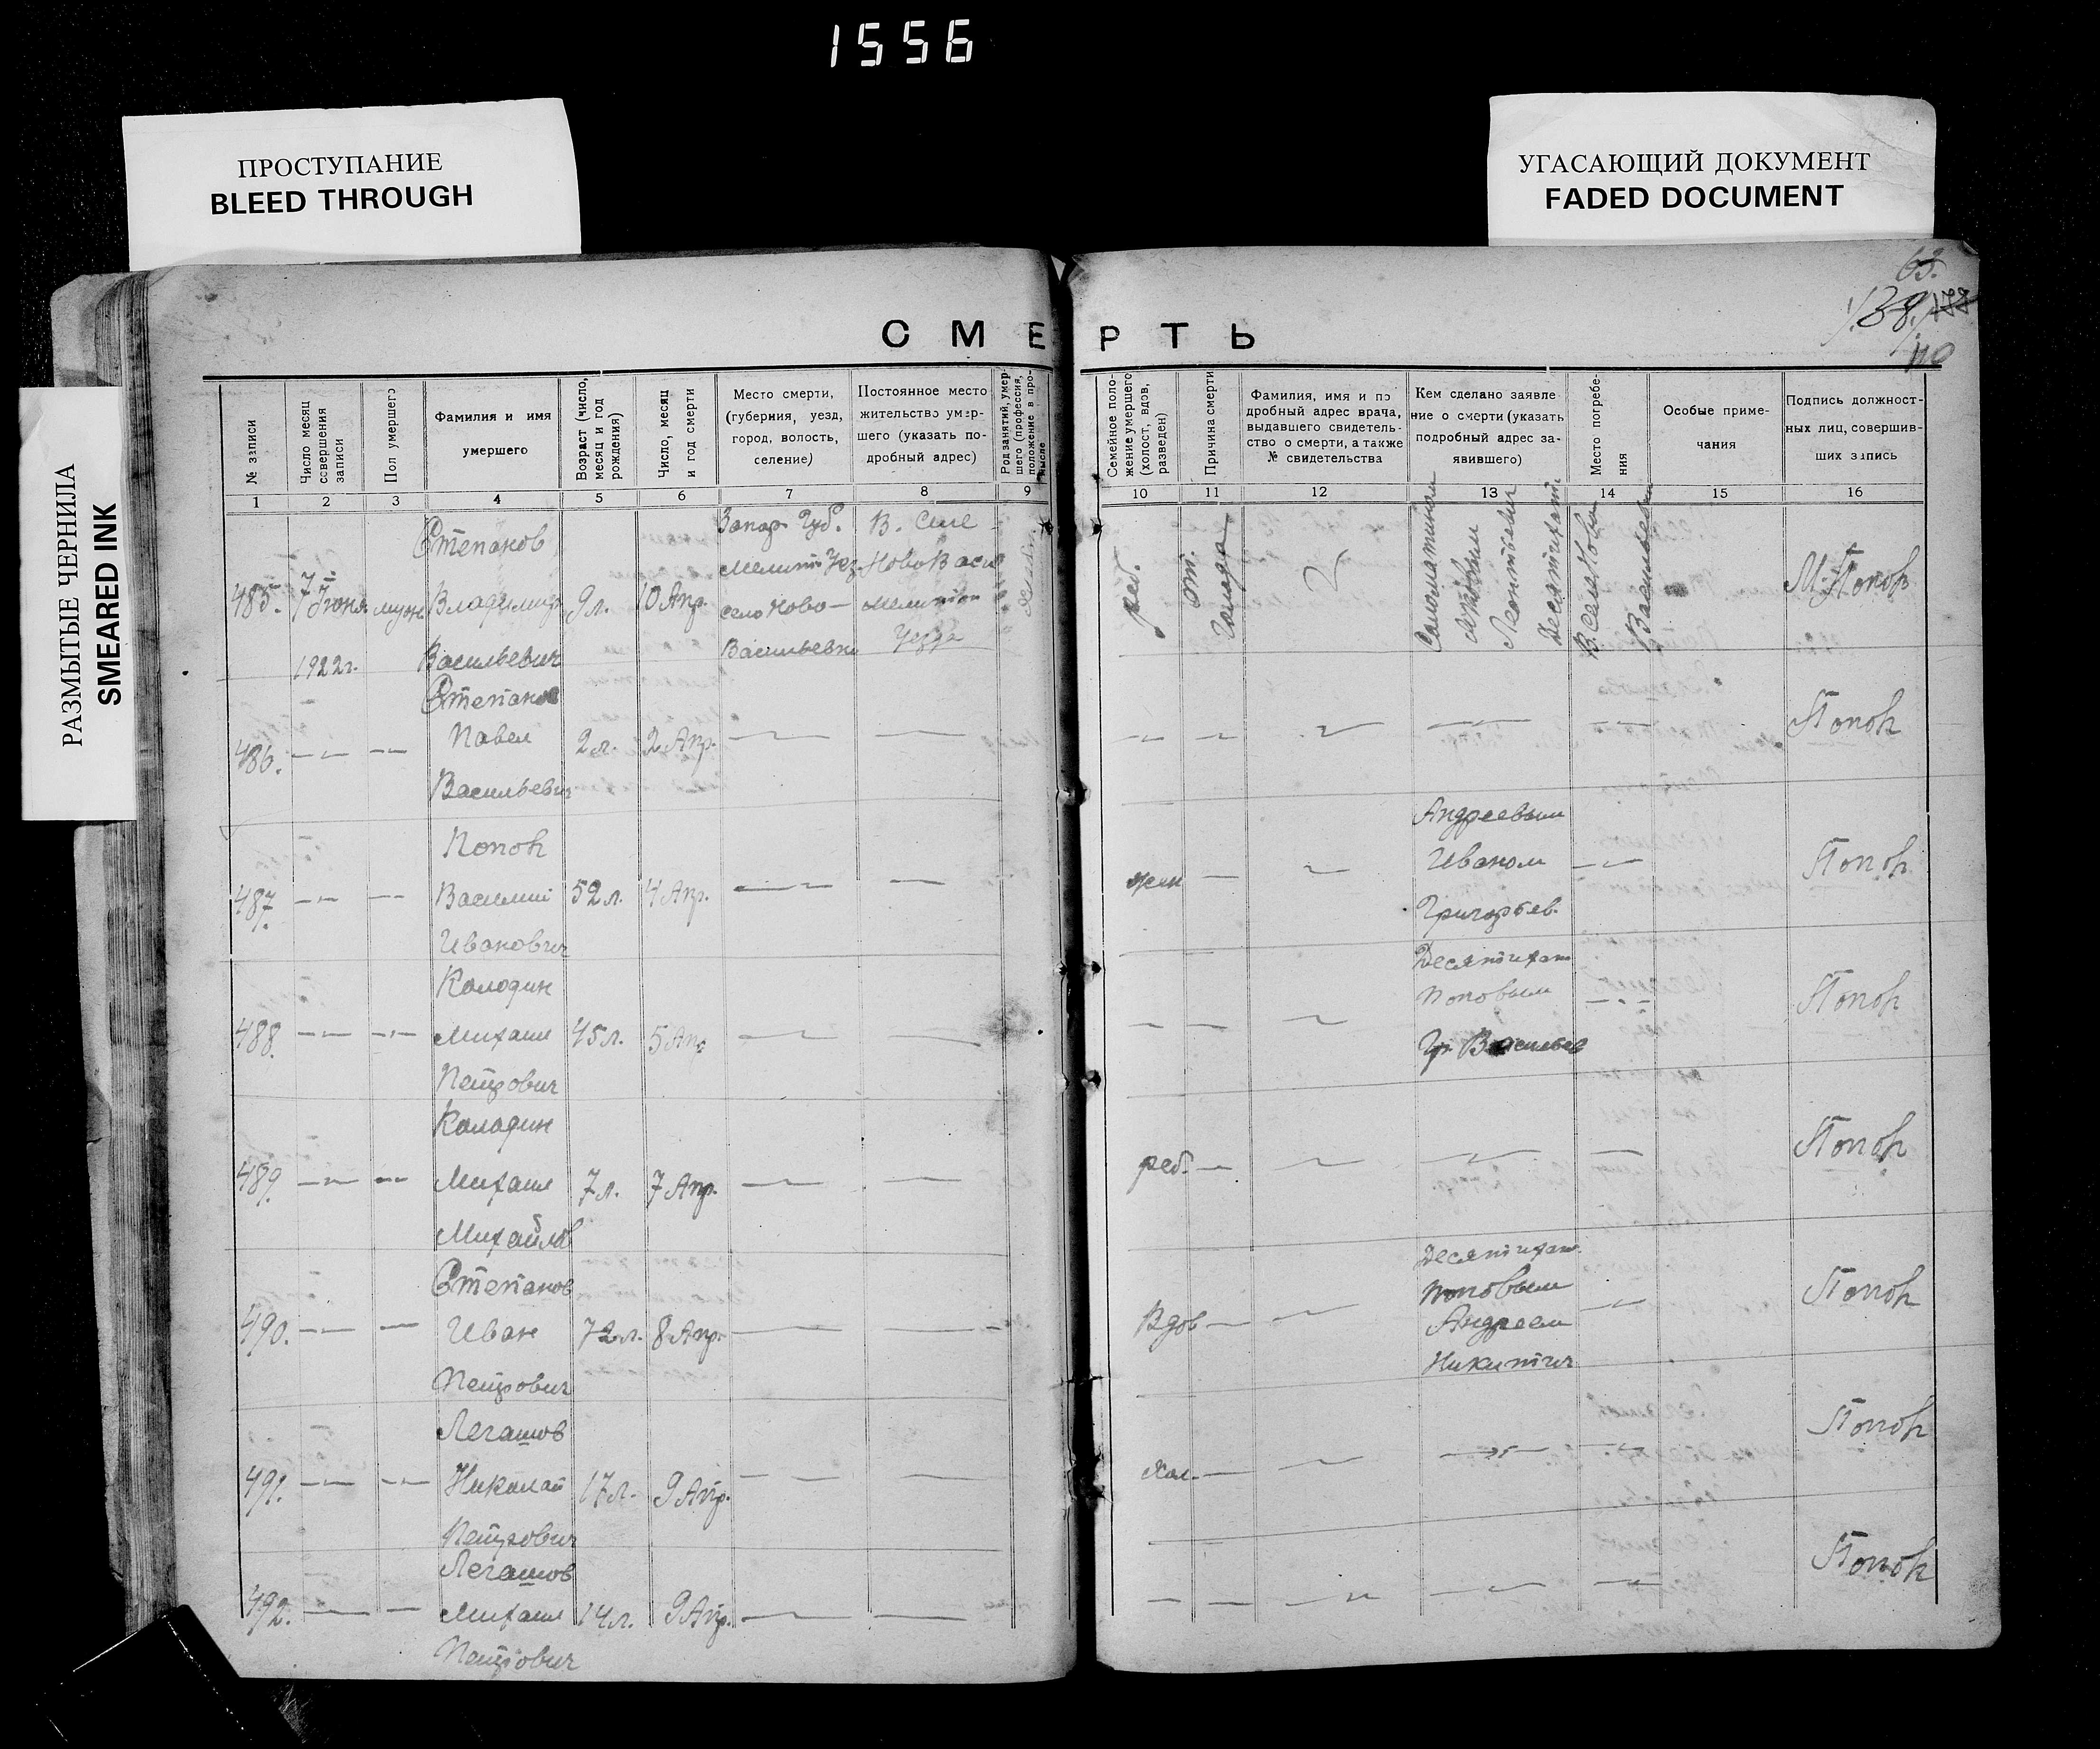 1556
ПРОСТУПАНИЕ
BLEED THROUGH
УГАСАЮЩИЙ ДОКУМЕНТ
FADED DOCUMENT
РАЗМЫТЫЕ ЧЕРНИЛА
SMEARED INK
63.
138
110
СМЕРТЬ
№ записи
Число месяц
совершения
записи
Пол умершего
Фамилия и имя
умершего
Возраст (число,
месяц и год
рождения)
Число, месяц
и год смерти
Место смерти,
(губерния, уезд,
город, волость,
селение)
Постоянное место
жительство умер-
шего (указать по-
дробный адрес)
Род занятий, умер-
шего (профессия,
положение в про-
мысле
Семейное поло-
жение умершего
(холост, вдов,
разведен)
Причина смерти
Фамилия, имя и по
дробный адрес врача,
выдавшего свидетель-
ство о смерти, а также
№ свидетельства
Кем сделано заявле
ние о смерти (указать
подробный адрес за-
явившего)
Место погребе-
ния
Особые приме-
чания
Подпись должност-
ных лиц, совершив-
ших запись
1 2 3 4 5 6 7 8 9 10 11 12 13 14 15 16
485. 7 Июня 1922г. муж.
Степанов
Владимир
Васильевич
9 л. 10 Апр.
Запор. Губ.
Мелит. Уез.
село Ново-
Васильевка
В. селе
НовоВаси
Мелитоп
Уезда
реб.
от.
голода
Десятихат.
Леонтьевич
В. селе Ново
Васильевки
М. Попов
486. — —
Степанов
Павел
Васильевич
2 л. 2 Апр. — —
Попов
487. — —
Попов
Василий
Иванович
52 л. 4 Апр. — —
жен —
Андреевым
Иваном
Григорьев.
Попов
488. — —
Колодин
Михаил
Петрович
45 л. 5 Апр — —
Десятихат
Поповым
Гр. Васильев
Попов
489. — —
Колодин
Михаил
Михайлов
7 л. 7 Апр. — —
реб. —
Попов
490. — —
Степанов
Иван
Петрович
72 л. 8 Апр. — —
Вдов —
Десятихат.
Поповым
Андреем
Никитич
Попов
491. — —
Легашов
Николай
Петрович
17 л. 9 Апр. — —
хол. —
Попов
492. — —
Легашов
Михаил
Петрович
14 л. 9 Апр. — —
Попов